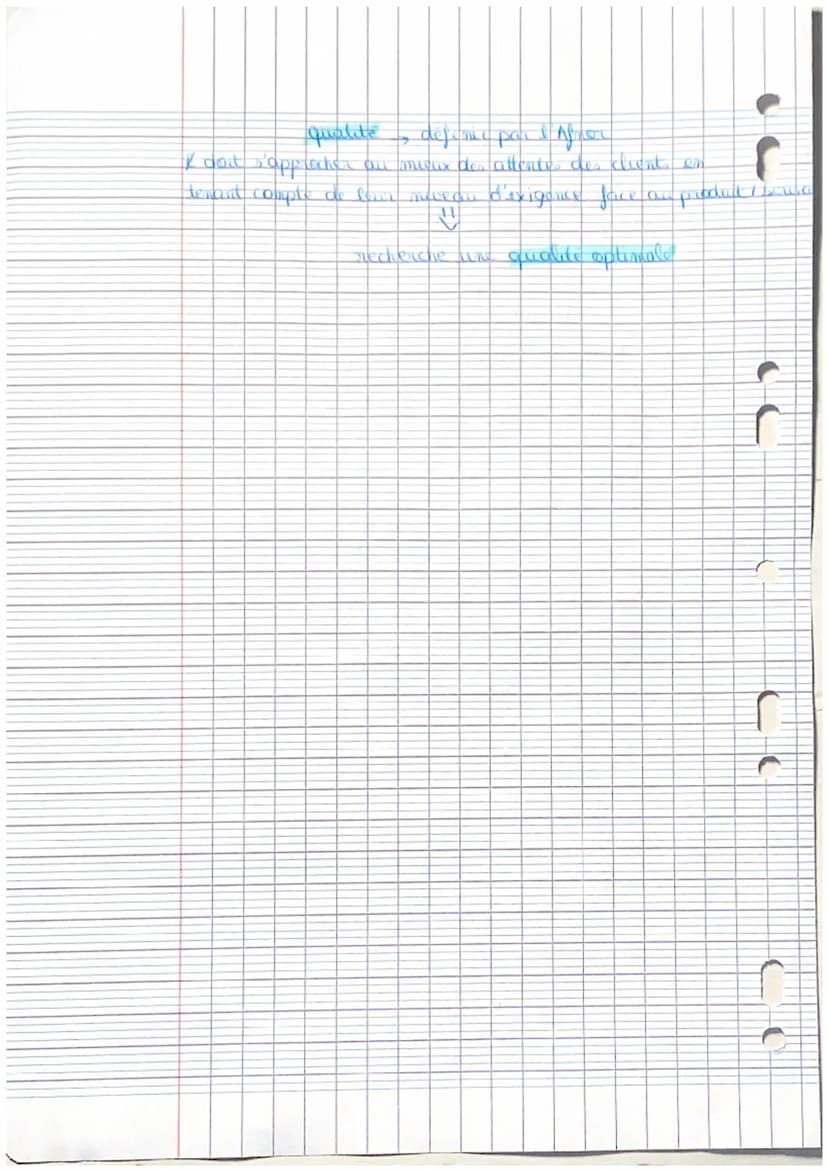 qualité, définie par l'Afnor
doit s'approcher au mieux des attentes des clients en
tenant compte de leur niveau d'exigence face au produit /
⇓
recherche une qualité optimale